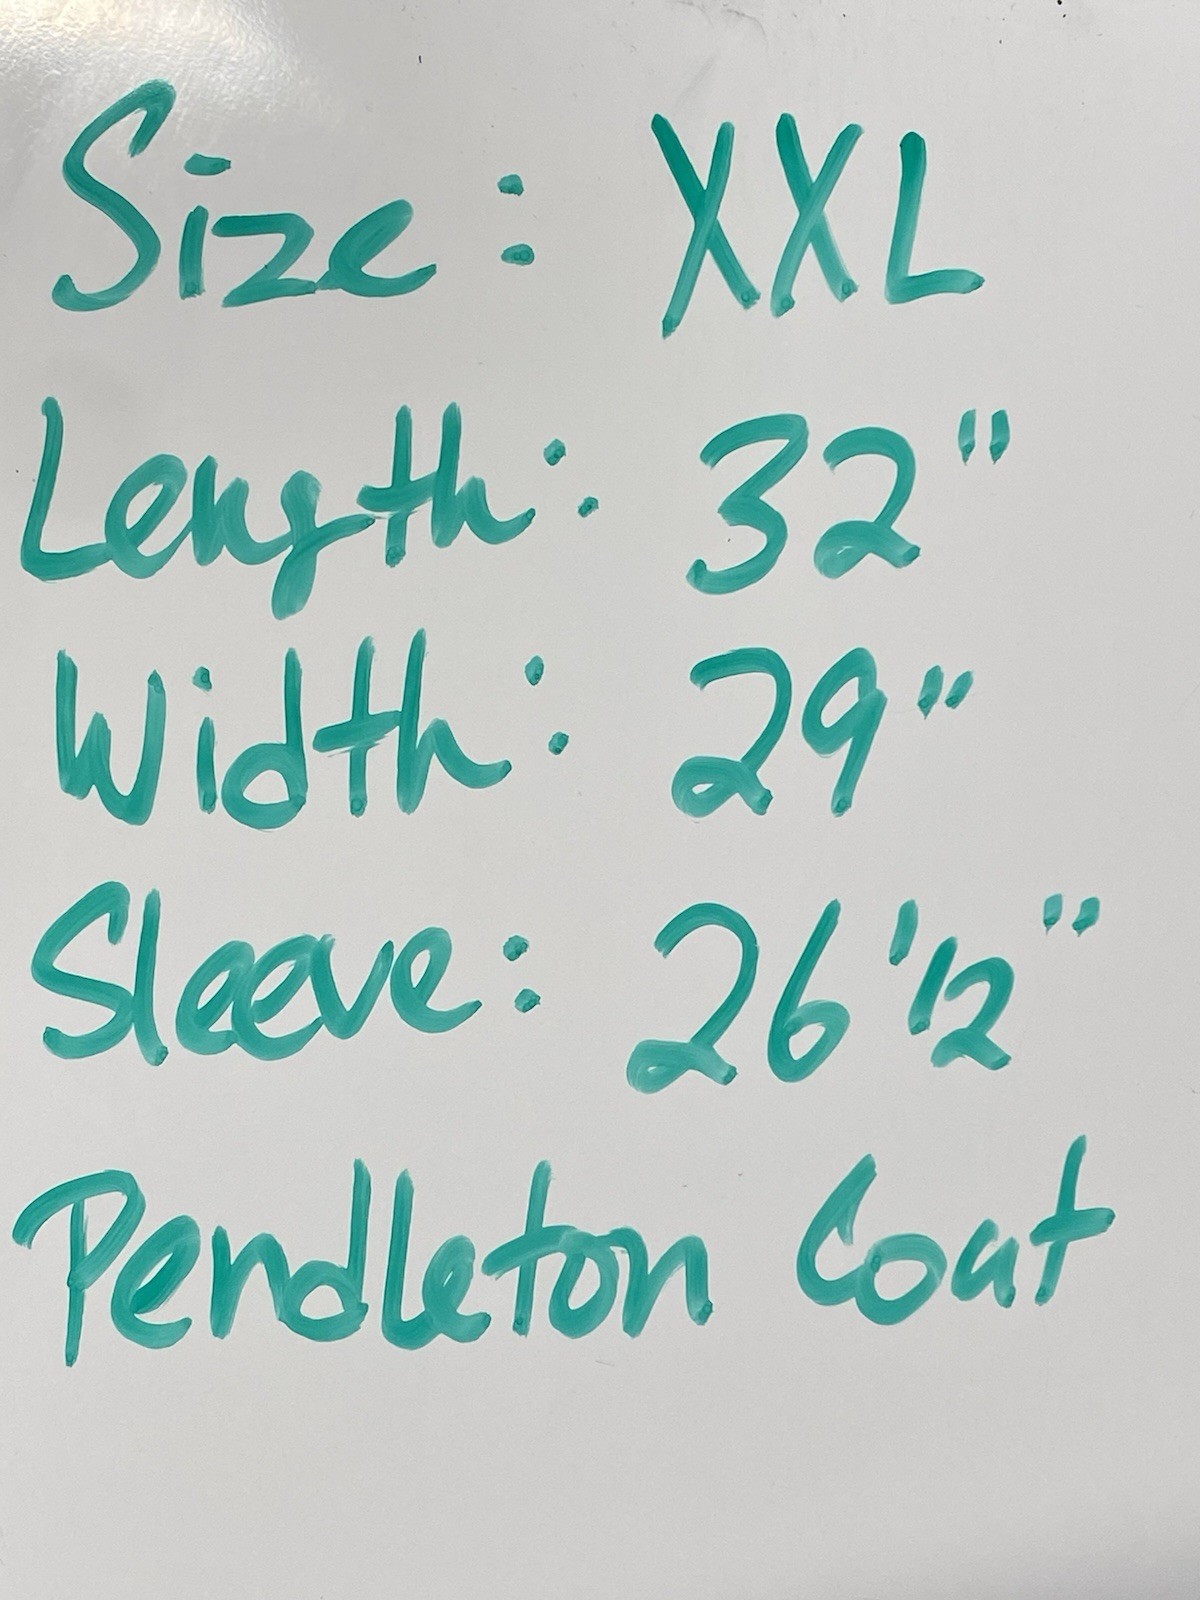 Size: XXL
Length: 32"
Width: 29"
Sleeve: 26 1/2"
Pendleton Coat